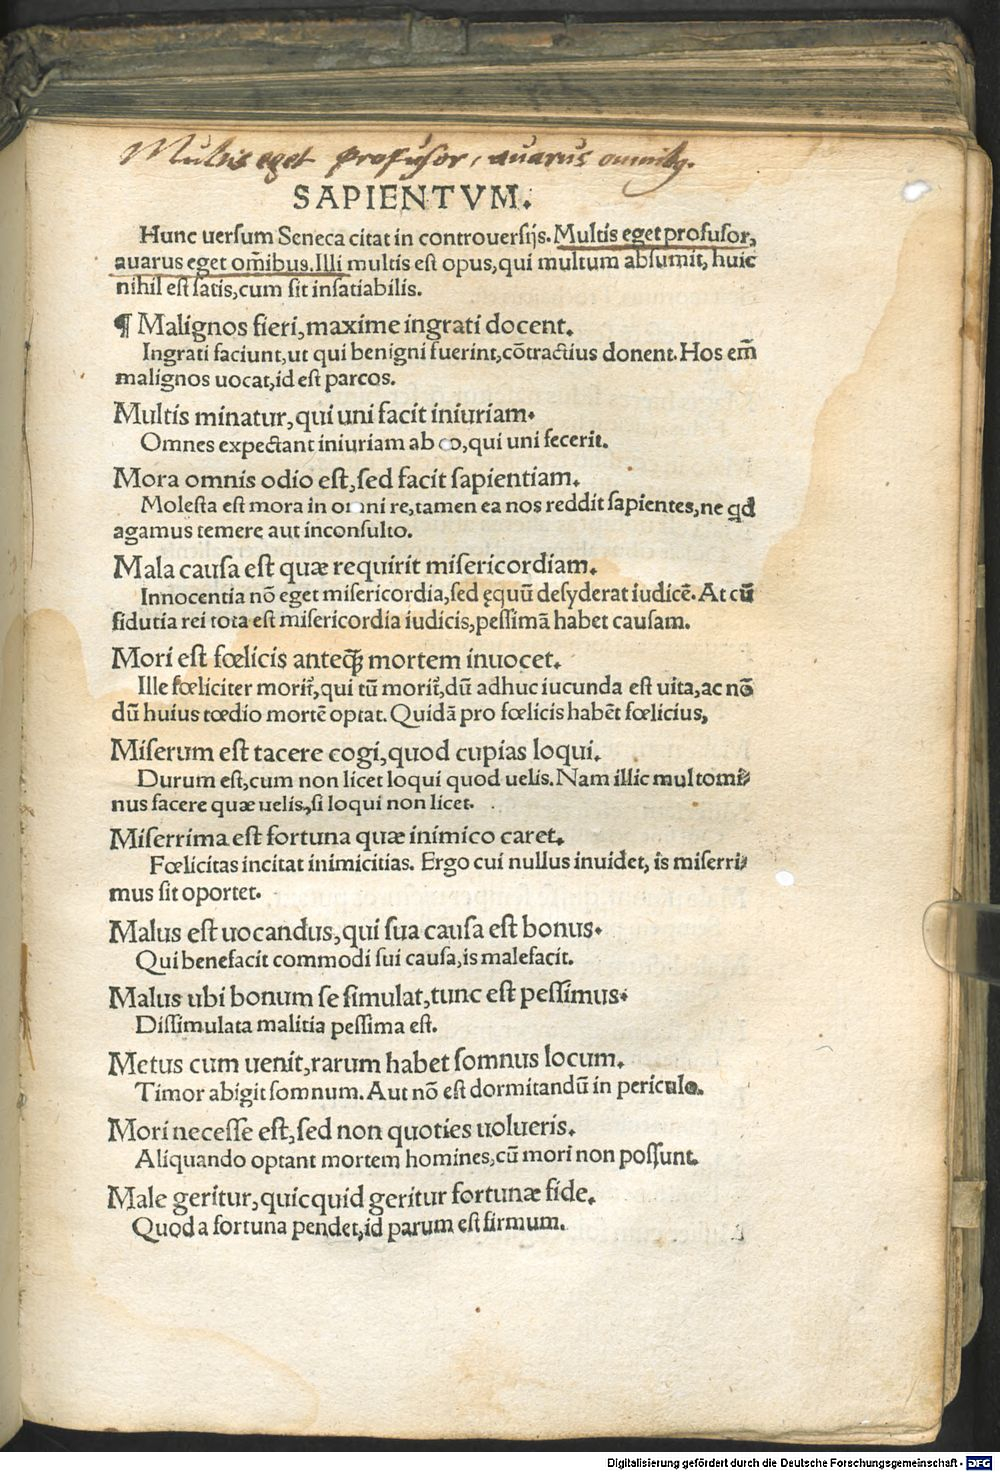 Multis eget profusor, auarus omnibꝰ.
SAPIENTVM.
Hunc uersum Seneca citat in controuersijs. Multis eget profusor,
auarus eget om̃ibus. Illi multis est opus, qui multum absumit, huic
nihil est satis, cum sit insatiabilis.
¶ Malignos fieri, maxime ingrati docent.
Ingrati faciunt, ut qui benigni fuerint, cōtractius donent. Hos em̃
malignos uocat, id est parcos.
Multis minatur, qui uni facit iniuriam.
Omnes expectant iniuriam ab eo, qui uni fecerit.
Mora omnis odio est, sed facit sapientiam.
Molesta est mora in omni re, tamen ea nos reddit sapientes, ne qd
agamus temere aut inconsulto.
Mala causa est quæ requirit misericordiam.
Innocentia nō eget misericordia, sed ęquū desyderat iudicē. At cū
fidutia rei tota est misericordia iudicis, pessimā habet causam.
Mori est fœlicis anteq̃ mortem inuocet.
Ille fœliciter morit̃, qui tū morit̃, dū adhuc iucunda est uita, ac nō
dū huius tœdio mortē optat. Quidā pro fœlicis habēt fœlicius,
Miserum est tacere cogi, quod cupias loqui.
Durum est, cum non licet loqui quod uelis. Nam illic multomi⸗
nus facere quæ uelis, si loqui non licet.
Miserrima est fortuna quæ inimico caret.
Fœlicitas incitat inimicitias. Ergo cui nullus inuidet, is miserri⸗
mus sit oportet.
Malus est uocandus, qui sua causa est bonus.
Qui benefacit commodi sui causa, is malefacit.
Malus ubi bonum se simulat, tunc est pessimus.
Dissimulata malitia pessima est.
Metus cum uenit, rarum habet somnus locum.
Timor abigit somnum. Aut nō est dormitandū in periculo.
Mori necesse est, sed non quoties uolueris.
Aliquando optant mortem homines, cū mori non possunt.
Male geritur, quicquid geritur fortunæ fide.
Quod a fortuna pendet, id parum est firmum.
Digitalisierung gefördert durch die Deutsche Forschungsgemeinschaft - DFG